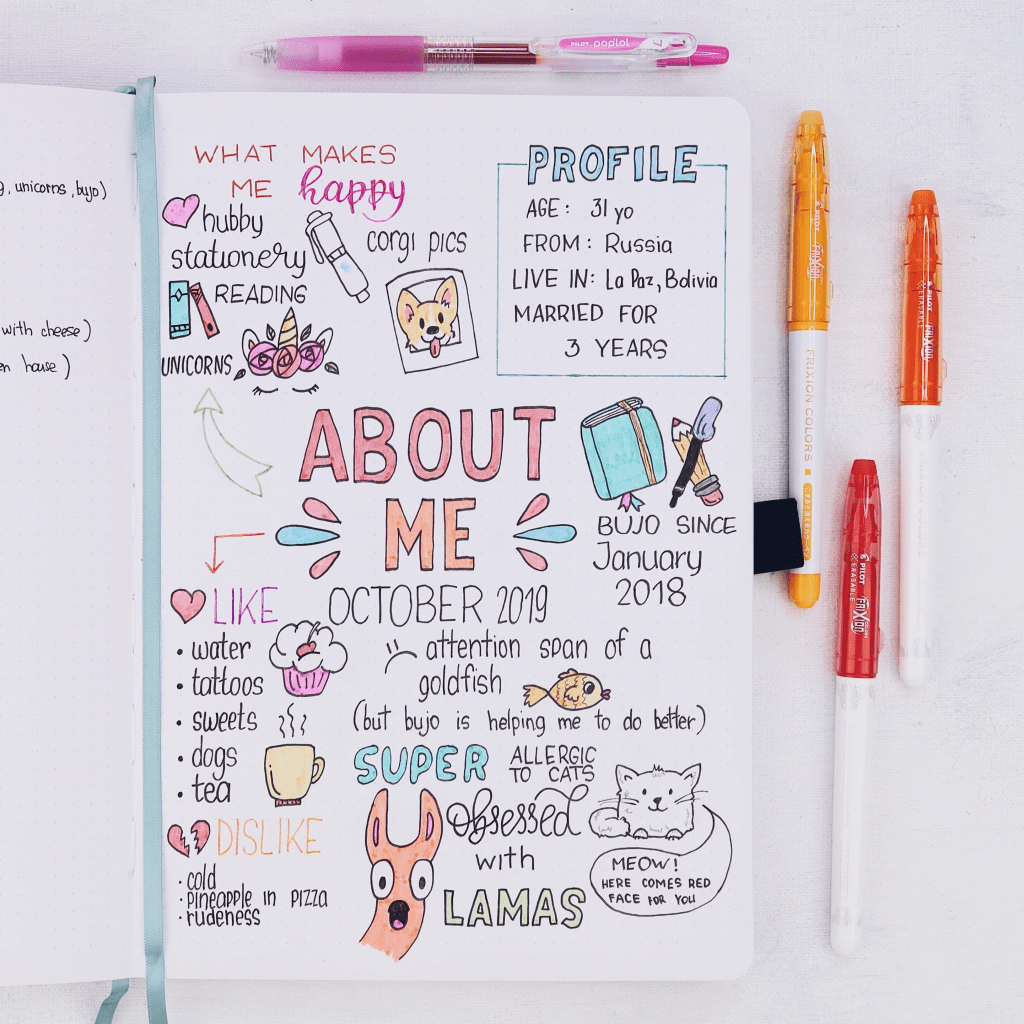 , unicorns, bujo)
with cheese)
house)
PILOT poplol
7
WHAT MAKES
ME happy
hubby
stationery
corgi pics
READING
UNICORNS
PROFILE
AGE: 31 yo
FROM: Russia
LIVE IN: La Paz, Bolivia
MARRIED FOR
3 YEARS
ABOUT
ME
OCTOBER 2019
BUJO SINCE
January
2018
LIKE
• water
• tattoos
• sweets
• dogs
• tea
DISLIKE
• cold
• pineapple in pizza
• rudeness
:( attention span of a
goldfish
(but bujo is helping me to do better)
SUPER ALLERGIC
TO CATS
obsessed
with
LAMAS
MEOW!
HERE COMES RED
FACE FOR YOU
PILOT FRIXION
FRIXION COLORS
PILOT FRIXION
ERASABLE
PILOT FRIXION
ERASABLE